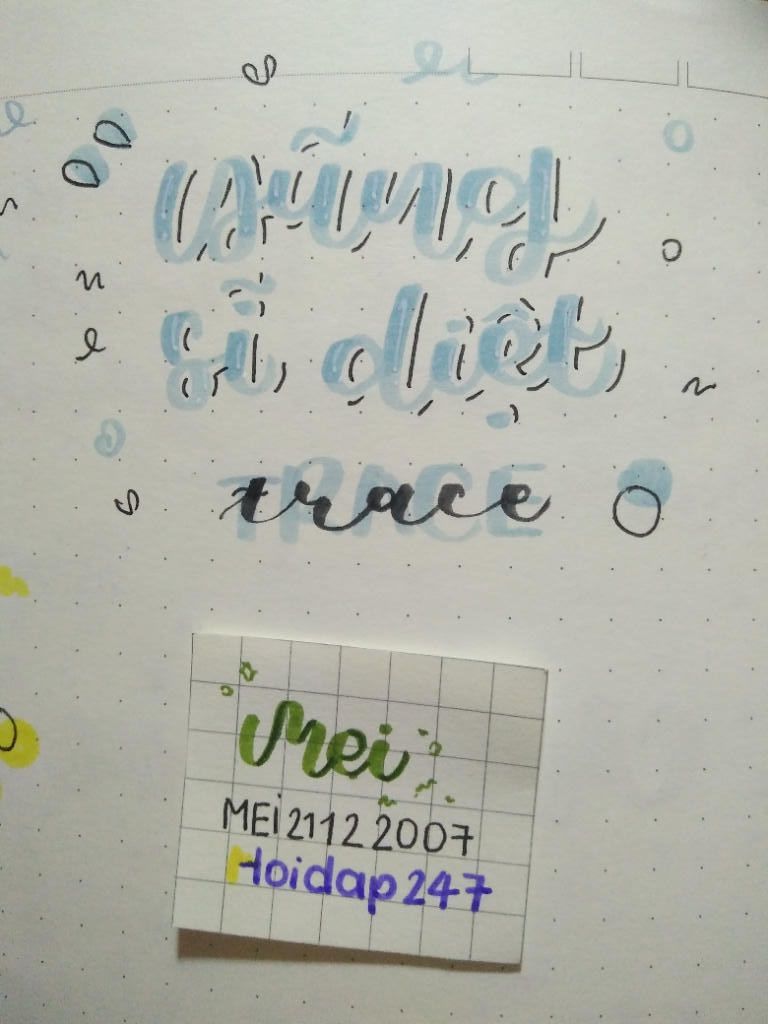 sĩ diệt
TRACE
trace
Mei
MEi 2112 2007
Hoidap247